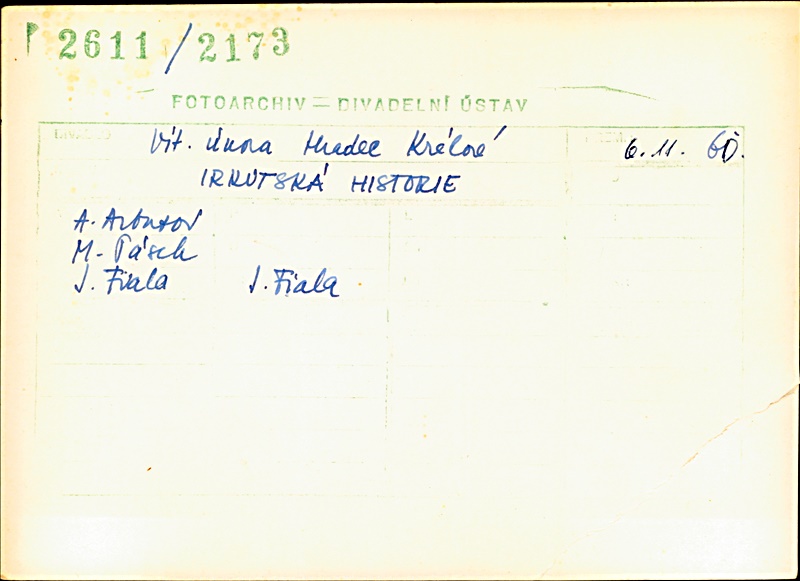 P 2611/2173
FOTOARCHIV — DIVADELNÍ ÚSTAV
Vít. února Hradec Králové 6.11. 60.
IRKUTSKÁ HISTORIE
A. Arbuzov
M. Pásek
J. Fiala J. Fiala